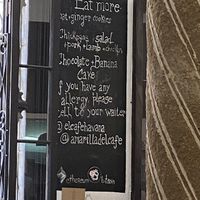 Eat more
oat+ginger cookies
Chickpeas + salad
+pork+lamb+chicken
Chocolate + Banana
Cake
f you have any
allergy please
tell to your waiter
@elcafehavana
@amarilladelcafe
ethereum
bitcoin